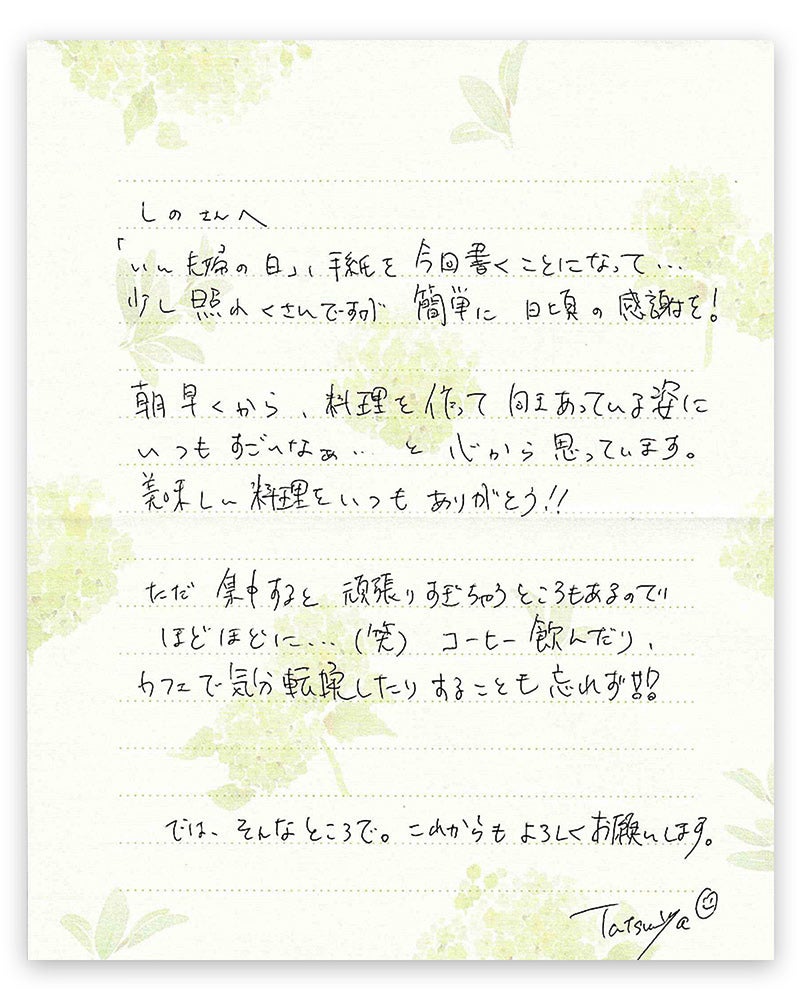 しのさんへ
「いい夫婦の日」、手紙を今回書くことになって…
少し照れくさいですが 簡単に 日頃の感謝を!
朝早くから、料理を作って向きあっている姿に
いつもすごいなぁ… と 心から思っています。
美味しい料理をいつもありがとう!!
ただ 集中すると 頑張りすぎちゃうところもあるので
ほどほどに…(笑) コーヒー飲んだり、
カフェで気分転換したりすることも忘れず!!
では、そんなところで。これからもよろしくお願いします。
Tatsuya